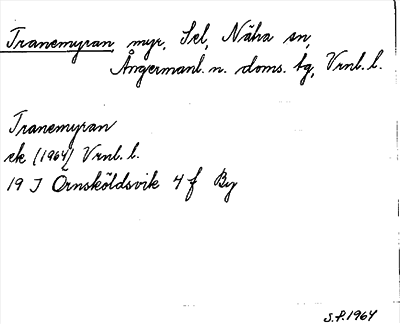 Tranemyran, myr, Sel, Näha sn,
Ångermanl. n. doms. tg, Vrnl. l.
Tranemyran
ek (1964) Vrnl. l.
19 J Örnsköldsvik 4 f By
S.P. 1964